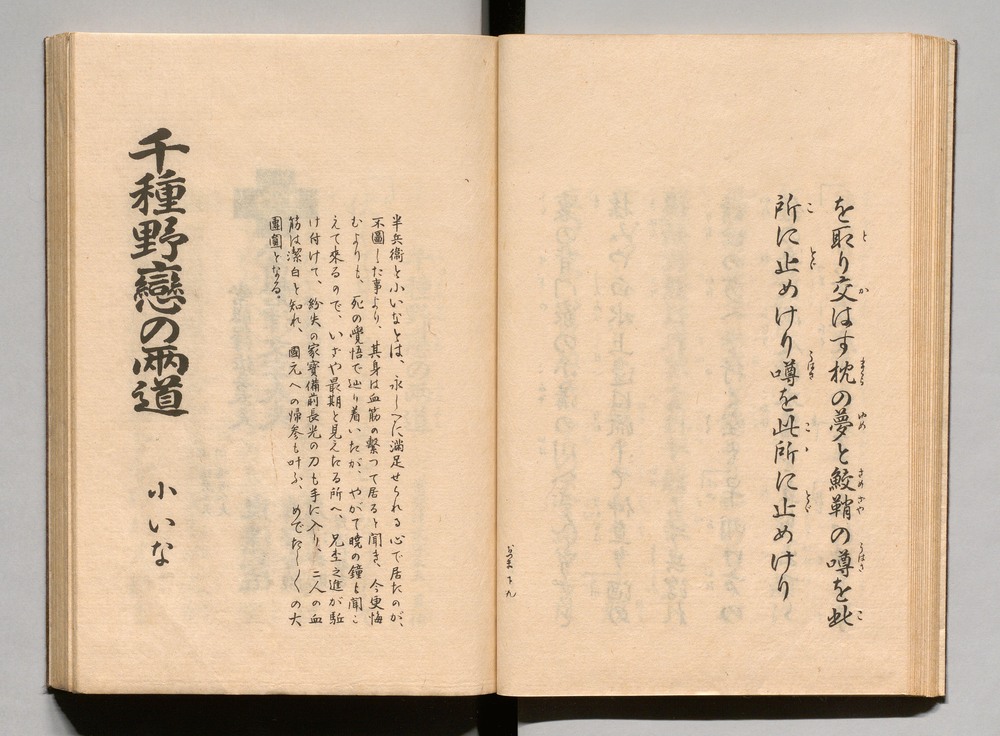 を取り交はす枕の夢と鮫鞘の噂を此
所に止めけり噂を此所に止めけり
半兵衞と小いなとは、永しへに滿足せられる心で居たのが、
不圖した事より、其身は血筋の繫つて居ると聞き、今更悔
むよりも、死の覺悟で辿り着いたが、やがて曉の鐘も聞こ
えて來るので、いざや最期と見えたる所へ、兄杢之進が駈
け付けて、紛失の家寶備前長光の刀も手に入り、二人の血
筋は潔白と知れ、國元への歸參も叶ふ、めでたし〱の大
團圓となる。
千種野戀の兩道
小いな